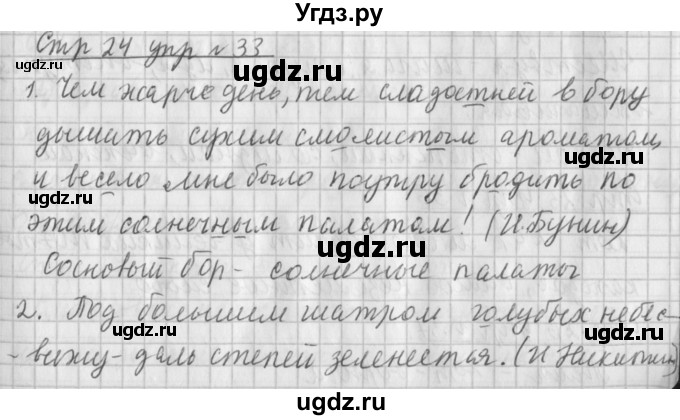 Угдз.ру
Стр 24 упр № 33
1. Чем жарче день, тем сладостней в бору
дышать сухим смолистым ароматом,
и весело мне было поутру бродить по
этим солнечным палатам! (И. Бунин)
Сосновый бор - солнечные палаты
2. Под большим шатром голубых небес-
- вижу - даль степей зеленеется. (И Никитин)
ugdz.ru
ugdz.ru
ugdz.ru
ugdz.ru
ugdz.ru
ugdz.ru
ugdz.ru
ugdz.ru
ugdz.ru
ugdz.ru
ugdz.ru
ugdz.ru
ugdz.ru